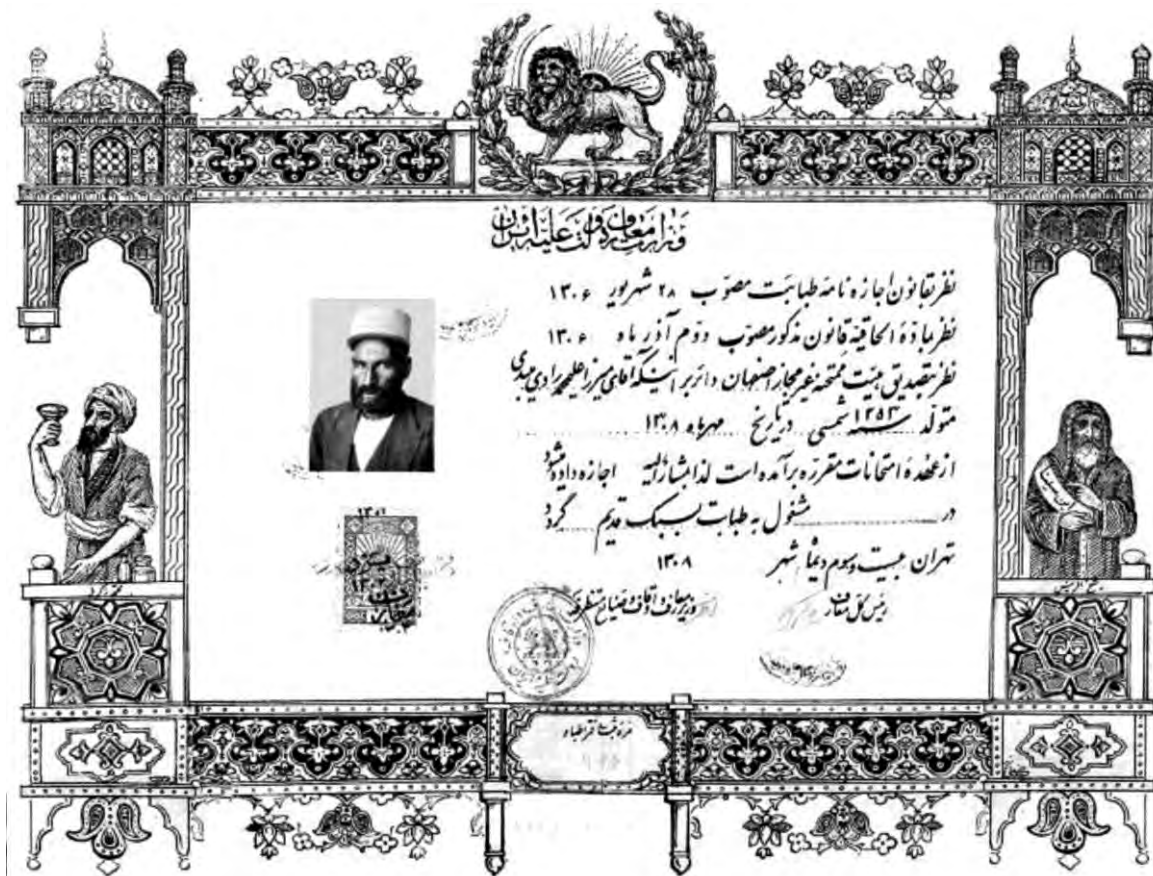 وزارت معارف دولت علیه ایران
نظر بقانون اجازه نامه طبابت مصوب ۲۸ شهریور ۱۳۰۶
نظر بمادهٔ الحاقیه قانون مذکور مصوب دوم آذر ماه ۱۳۰۶
نظر بتصدیق هیئت ممتحنه غیر مجاز اصفهان دائر بر اینکه آقای میرزا علیمحمد رادی میبدی
متولد سنه ۱۲۵۳ شمسی در تاریخ مهر ماه ۱۳۰۸
از عهدهٔ امتحانات مقرره برآمده است لذا بمشارالیه اجازه داده میشود
در مشغول به طبابت بسبک قدیم گردد
تهران بیست و سوم دیماه شهر ۱۳۰۸
رئیس کل معارف
وزیر معارف و اوقاف و صنایع مستظرفه
نمره ثبت دفتر اطباء